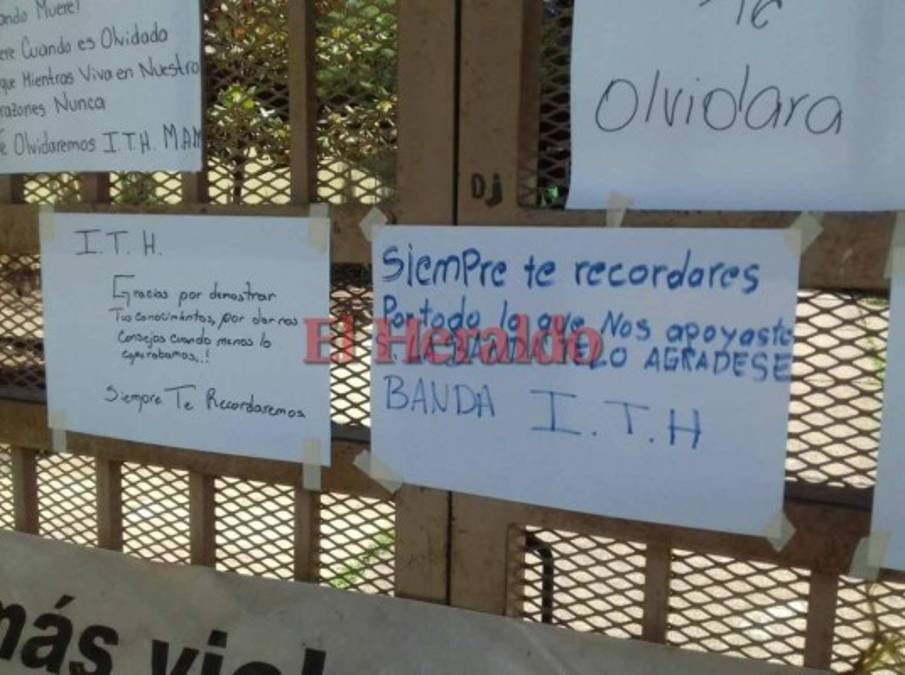 ando Muere!
ere Cuando es Olvidado
que Mientras Viva en Nuestro
razones Nunca
é Olvidaremos I.T.H. M.A.M
Te
Olvidara
Dj
I.T.H.
Gracias por demostrar
Tus conocimientos, por darnos
Consejos cuando menos lo
esperabamos,.!
Siempre Te Recordaremos
Siempre te recordares
Por todo lo que Nos apoyaste
LA BANDA TELO AGRADESE
BANDA I.T.H
El Heraldo
más viol